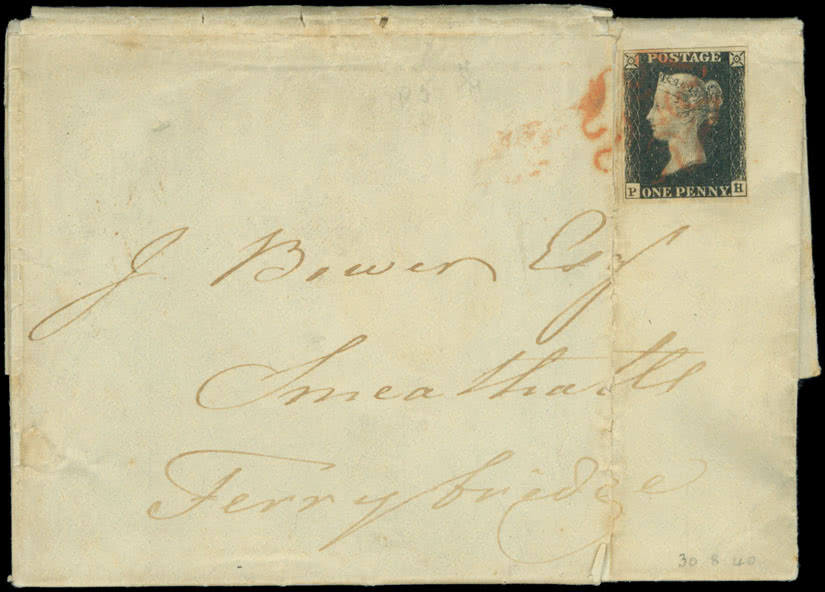 POSTAGE
P ONE PENNY H
J Bower Esq
Smeathalls
Ferrybridge
30 8 40